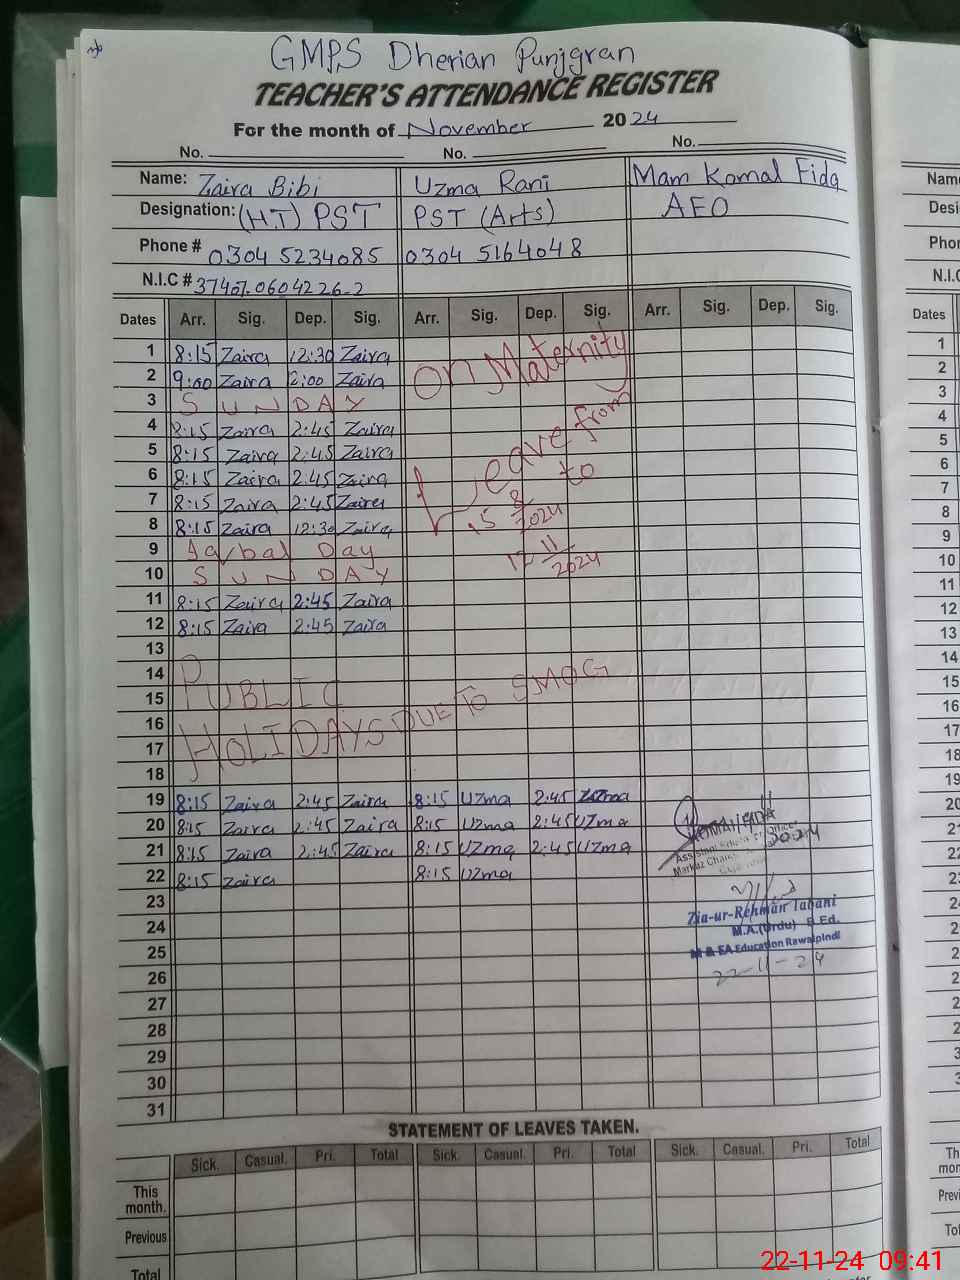 GMPS Dherian Punjgran
TEACHER'S ATTENDANCE REGISTER
For the month of November 2024
No. No. No.
Name: Zaira Bibi Uzma Rani Mam Komal Fida
Designation: (H.T) PST PST (Arts) AEO
Phone # 0304 5234085 0304 5164048
N.I.C #
Dates Arr. Sig. Dep. Sig. Arr. Sig. Dep. Sig. Arr. Sig. Dep. Sig.
1 8:15 Zaira 12:30 Zaira
2 9:00 Zaira 2:00 Zaira
3 SUNDAY
4 8:15 Zaira 2:45 Zaira
5 8:15 Zaira 2:45 Zaira
6 8:15 Zaira 2:45 Zaira
7 8:15 Zaira 2:45 Zaira
8 8:15 Zaira 12:30 Zaira
9 Iqbal Day
10 SUNDAY
11 8:15 Zaira 2:45 Zaira
12 8:15 Zaira 2:45 Zaira
On Maternity
Leave from
15 8/2024 to
12 11/2024
13
14
15 PUBLIC
16 HOLIDAYS DUE TO SMOG
17
18
19 8:15 Zaira 2:45 Zaira 8:15 Uzma 2:45 Uzma
20 8:15 Zaira 2:45 Zaira 8:15 Uzma 2:45 Uzma
21 8:15 Zaira 2:45 Zaira 8:15 Uzma 2:45 Uzma
22 8:15 Zaira 8:15 Uzma
KOMAL FIDA
Zia-ur-Rehman Tabani
M.A.(Urdu) B.Ed.
M & EA Education Rawalpindi
22-11-24
23
24
25
26
27
28
29
30
31
STATEMENT OF LEAVES TAKEN.
Sick. Casual. Pri. Total Sick. Casual. Pri. Total Sick. Casual. Pri. Total
This month.
Previous
Total
22-11-24 09:41